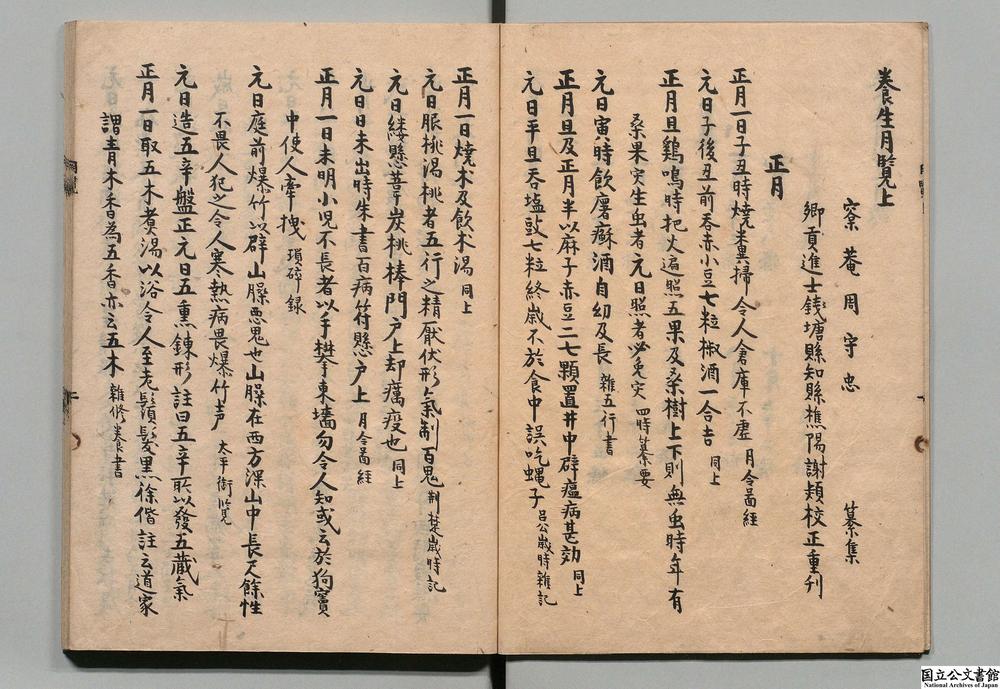 養生月覽上
寮菴周守忠　纂集
鄉貢進士錢塘縣知縣樵陽謝熲校正重刊
正月
正月一日子丑時燒糞掃令人倉庫不虛 月令啚經
元日子後丑前吞赤小豆七粒椒酒一合吉 同上
正月旦鷄鳴時把火遍照五果及桑樹上下則無虫時年有
桑果灾生虫者元日照者必免灾 四時纂要
元日寅時飲屠蘇酒自幼及長 雜五行書
正月旦及正月半以麻子赤豆二七顆置井中辟瘟病甚効 同上
元日平旦吞塩豉七粒終歲不於食中誤吃蝇子 呂公歲時雜記
正月一日燒术及飲术湯 同上
元日服桃湯桃者五行之精厭伏邪氣制百鬼 荆楚歲時記
元日縷懸葦炭桃棒門戶上却癘疫也 同上
元日日未出時朱書百病符懸户上 月令啚經
正月一日未明小兒不長者以手攀東墻勿令人知或云於狗竇
中使人牽拽 瑣碎録
元日庭前爆竹以辟山臊恶鬼也山臊在西方深山中長尺餘性
不畏人犯之令人寒熱病畏爆竹声 太平御覽
元日造五辛盤正元日五熏鍊形註曰五辛所以發五藏氣
正月一日取五木煑湯以浴令人至老鬚髮黑徐偕註云道家
謂青木香為五香亦云五木 雜修養書
国立公文書館
National Archives of Japan